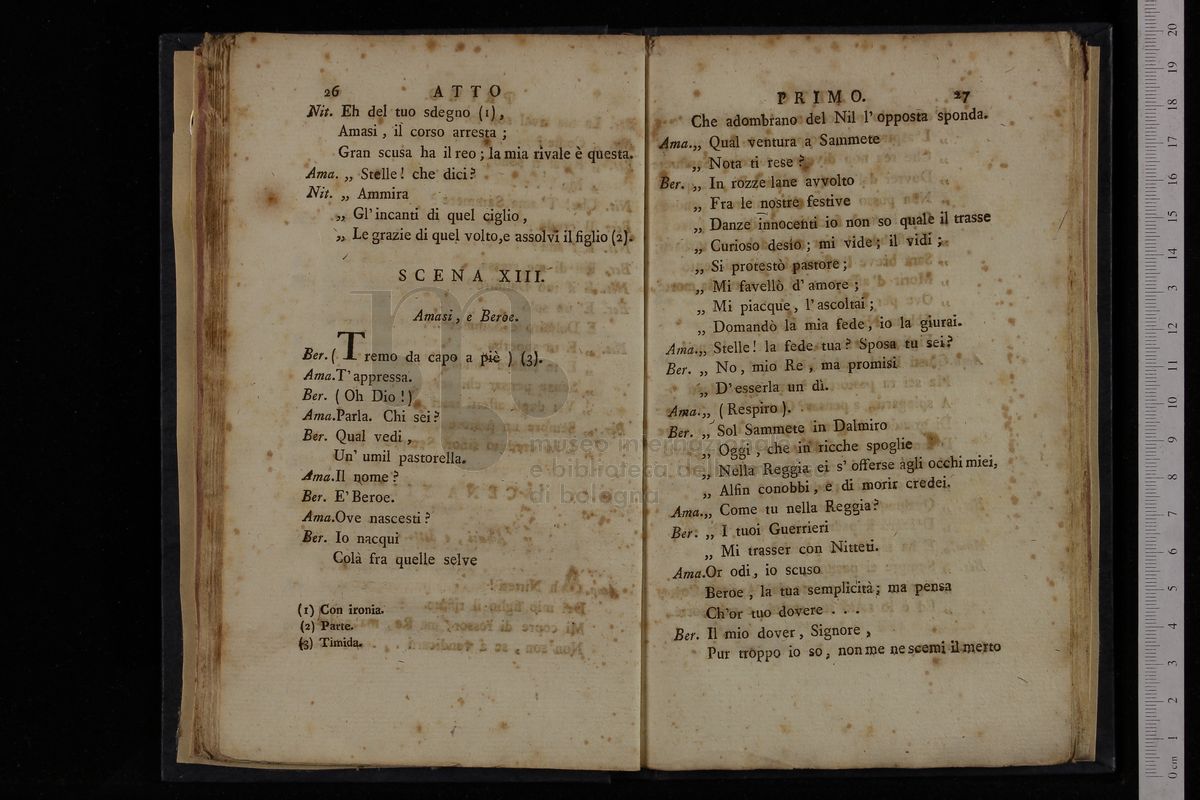 26 ATTO
Nit. Eh del tuo sdegno (1),
Amasi, il corso arresta;
Gran scusa ha il reo; la mia rivale è questa.
Ama. „ Stelle! che dici?
Nit. „ Ammira
„ Gl' incanti di quel ciglio,
„ Le grazie di quel volto, e assolvi il figlio (2).
SCENA XIII.
Amasi, e Beroe.
Ber. ( Tremo da capo a piè ) (3).
Ama. T' appressa.
Ber. ( Oh Dio! )
Ama. Parla. Chi sei?
Ber. Qual vedi,
Un' umil pastorella.
Ama. Il nome?
Ber. E' Beroe.
Ama. Ove nascesti?
Ber. Io nacqui
Colà fra quelle selve
(1) Con ironia.
(2) Parte.
(3) Timida.
PRIMO. 27
Che adombrano del Nil l' opposta sponda.
Ama. „ Qual ventura a Sammete
„ Nota ti rese?
Ber. „ In rozze lane avvolto
„ Fra le nostre festive
„ Danze innocenti io non so quale il trasse
„ Curioso desio; mi vide; il vidi;
„ Si protestò pastore;
„ Mi favellò d' amore;
„ Mi piacque, l' ascoltai;
„ Domandò la mia fede, io la giurai.
Ama. „ Stelle! la fede tua? Sposa tu sei?
Ber. „ No, mio Re, ma promisi
„ D' esserla un dì.
Ama. „ ( Respiro ).
Ber. „ Sol Sammete in Dalmiro
„ Oggi, che in ricche spoglie
„ Nella Reggia ei s' offerse agli occhi miei,
„ Alfin conobbi, e di morir credei.
Ama. „ Come tu nella Reggia?
Ber. „ I tuoi Guerrieri
„ Mi trasser con Nitteti.
Ama. Or odi, io scuso
Beroe, la tua semplicità; ma pensa
Ch'or tuo dovere . . .
Ber. Il mio dover, Signore,
Pur troppo io so, non me ne scemi il merto
museo internazionale
e biblioteca della
di bologna
0 cm 1 2 3 4 5 6 7 8 9 10 11 12 13 14 15 16 17 18 19 20